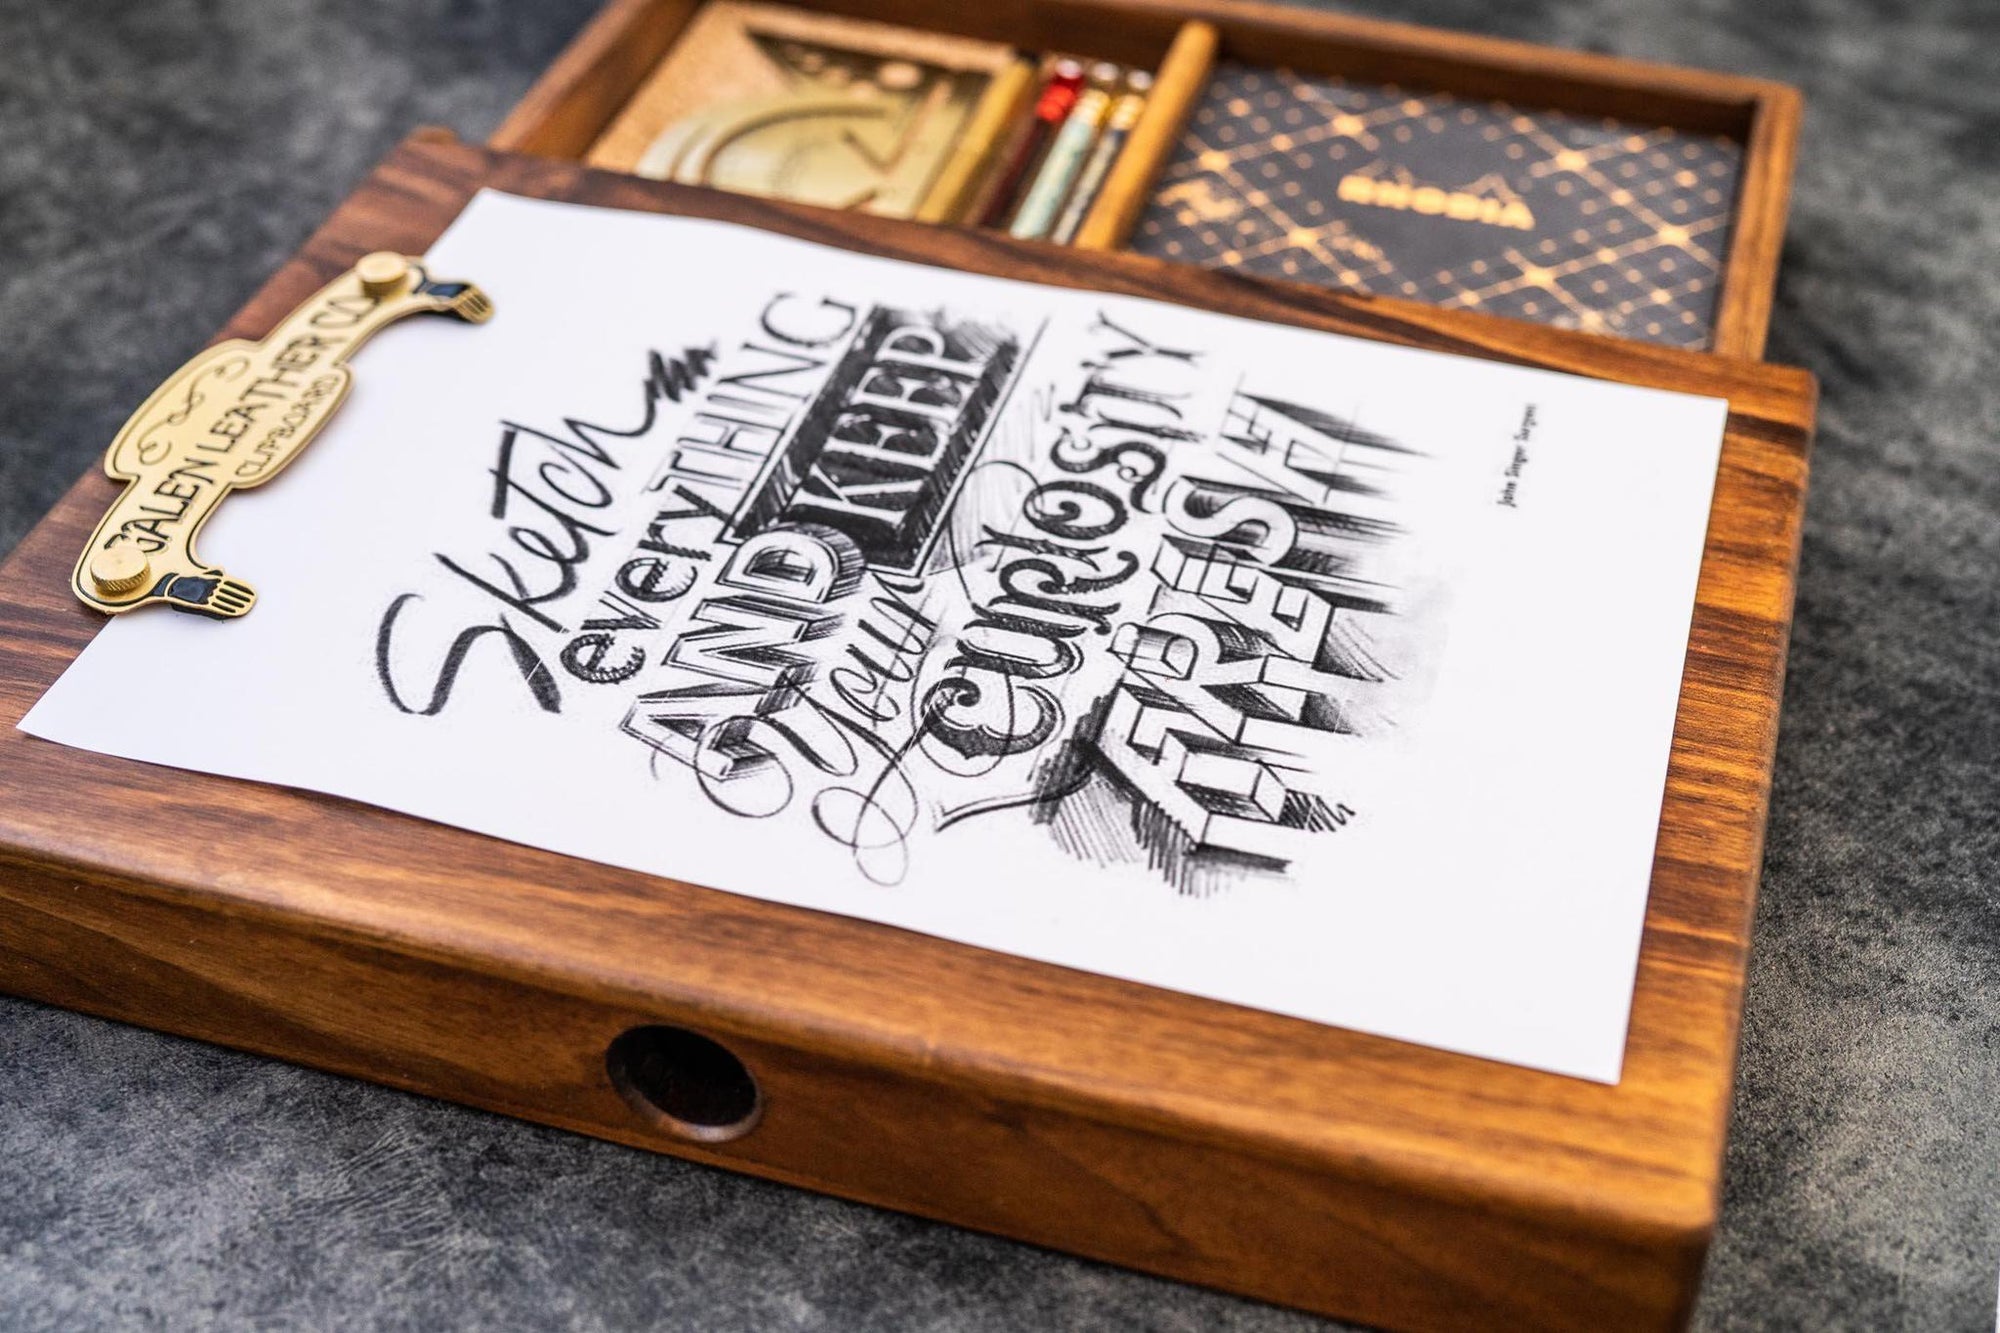 GALEN LEATHER CO.
CLIPBOARD
Sketch
everyTHING
AND KEEP
Your
CURIOSITY
FRESH
John Singer Sargent
RHODIA